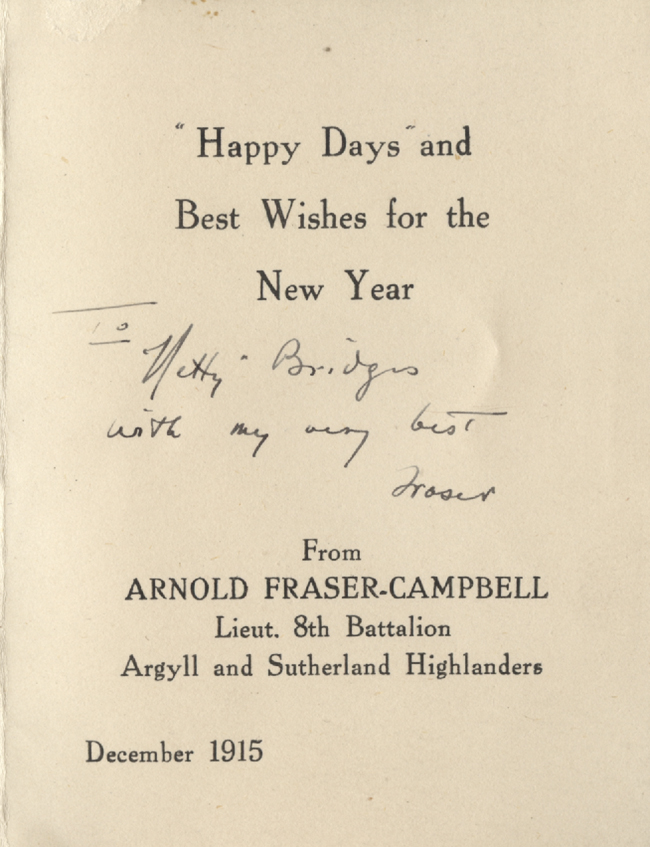 "Happy Days" and
Best Wishes for the
New Year
To
"Netty" Bridges
with my very best
Fraser
From
ARNOLD FRASER-CAMPBELL
Lieut. 8th Battalion
Argyll and Sutherland Highlanders
December 1915